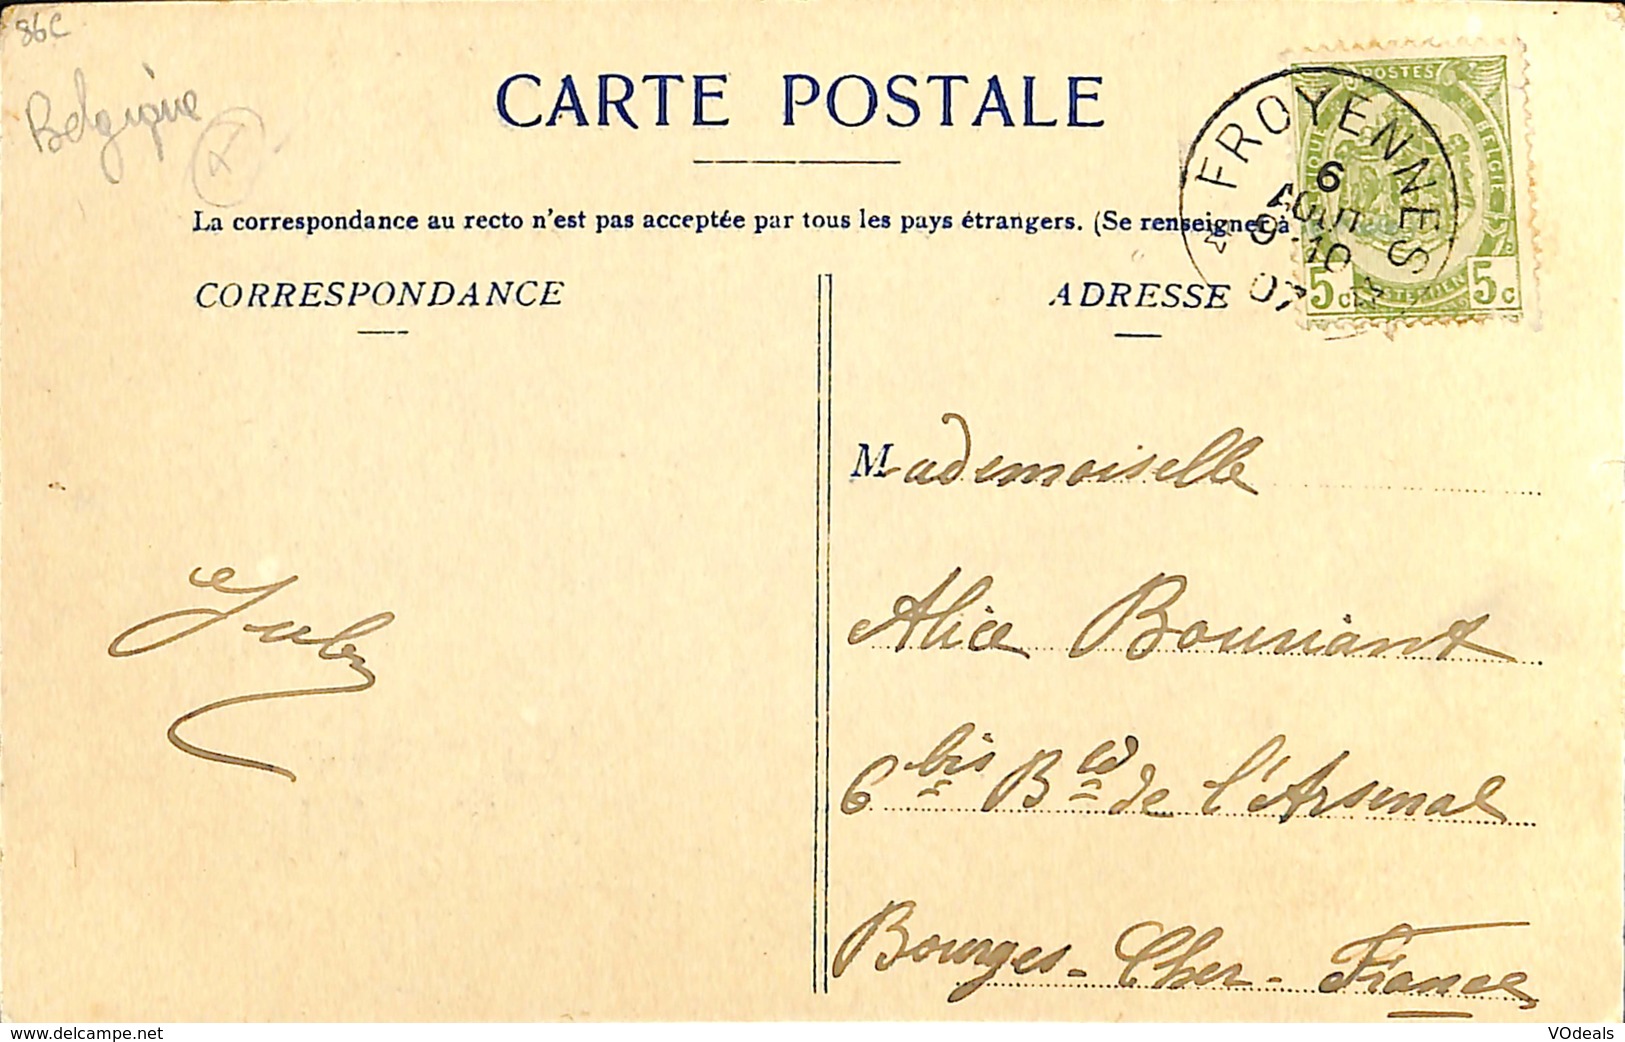 86c
Belgique
CARTE POSTALE
La correspondance au recto n'est pas acceptée par tous les pays étrangers. (Se renseigner à
CORRESPONDANCE
ADRESSE
FROYENNES
6
AOUT
9-10
07
POSTES
BELGIE
5c
5c
Mademoiselle
Alice Bouriant
6 bis Bd de l'Arsenal
Bourges - Cher - France
www.delcampe.net
VOdeals